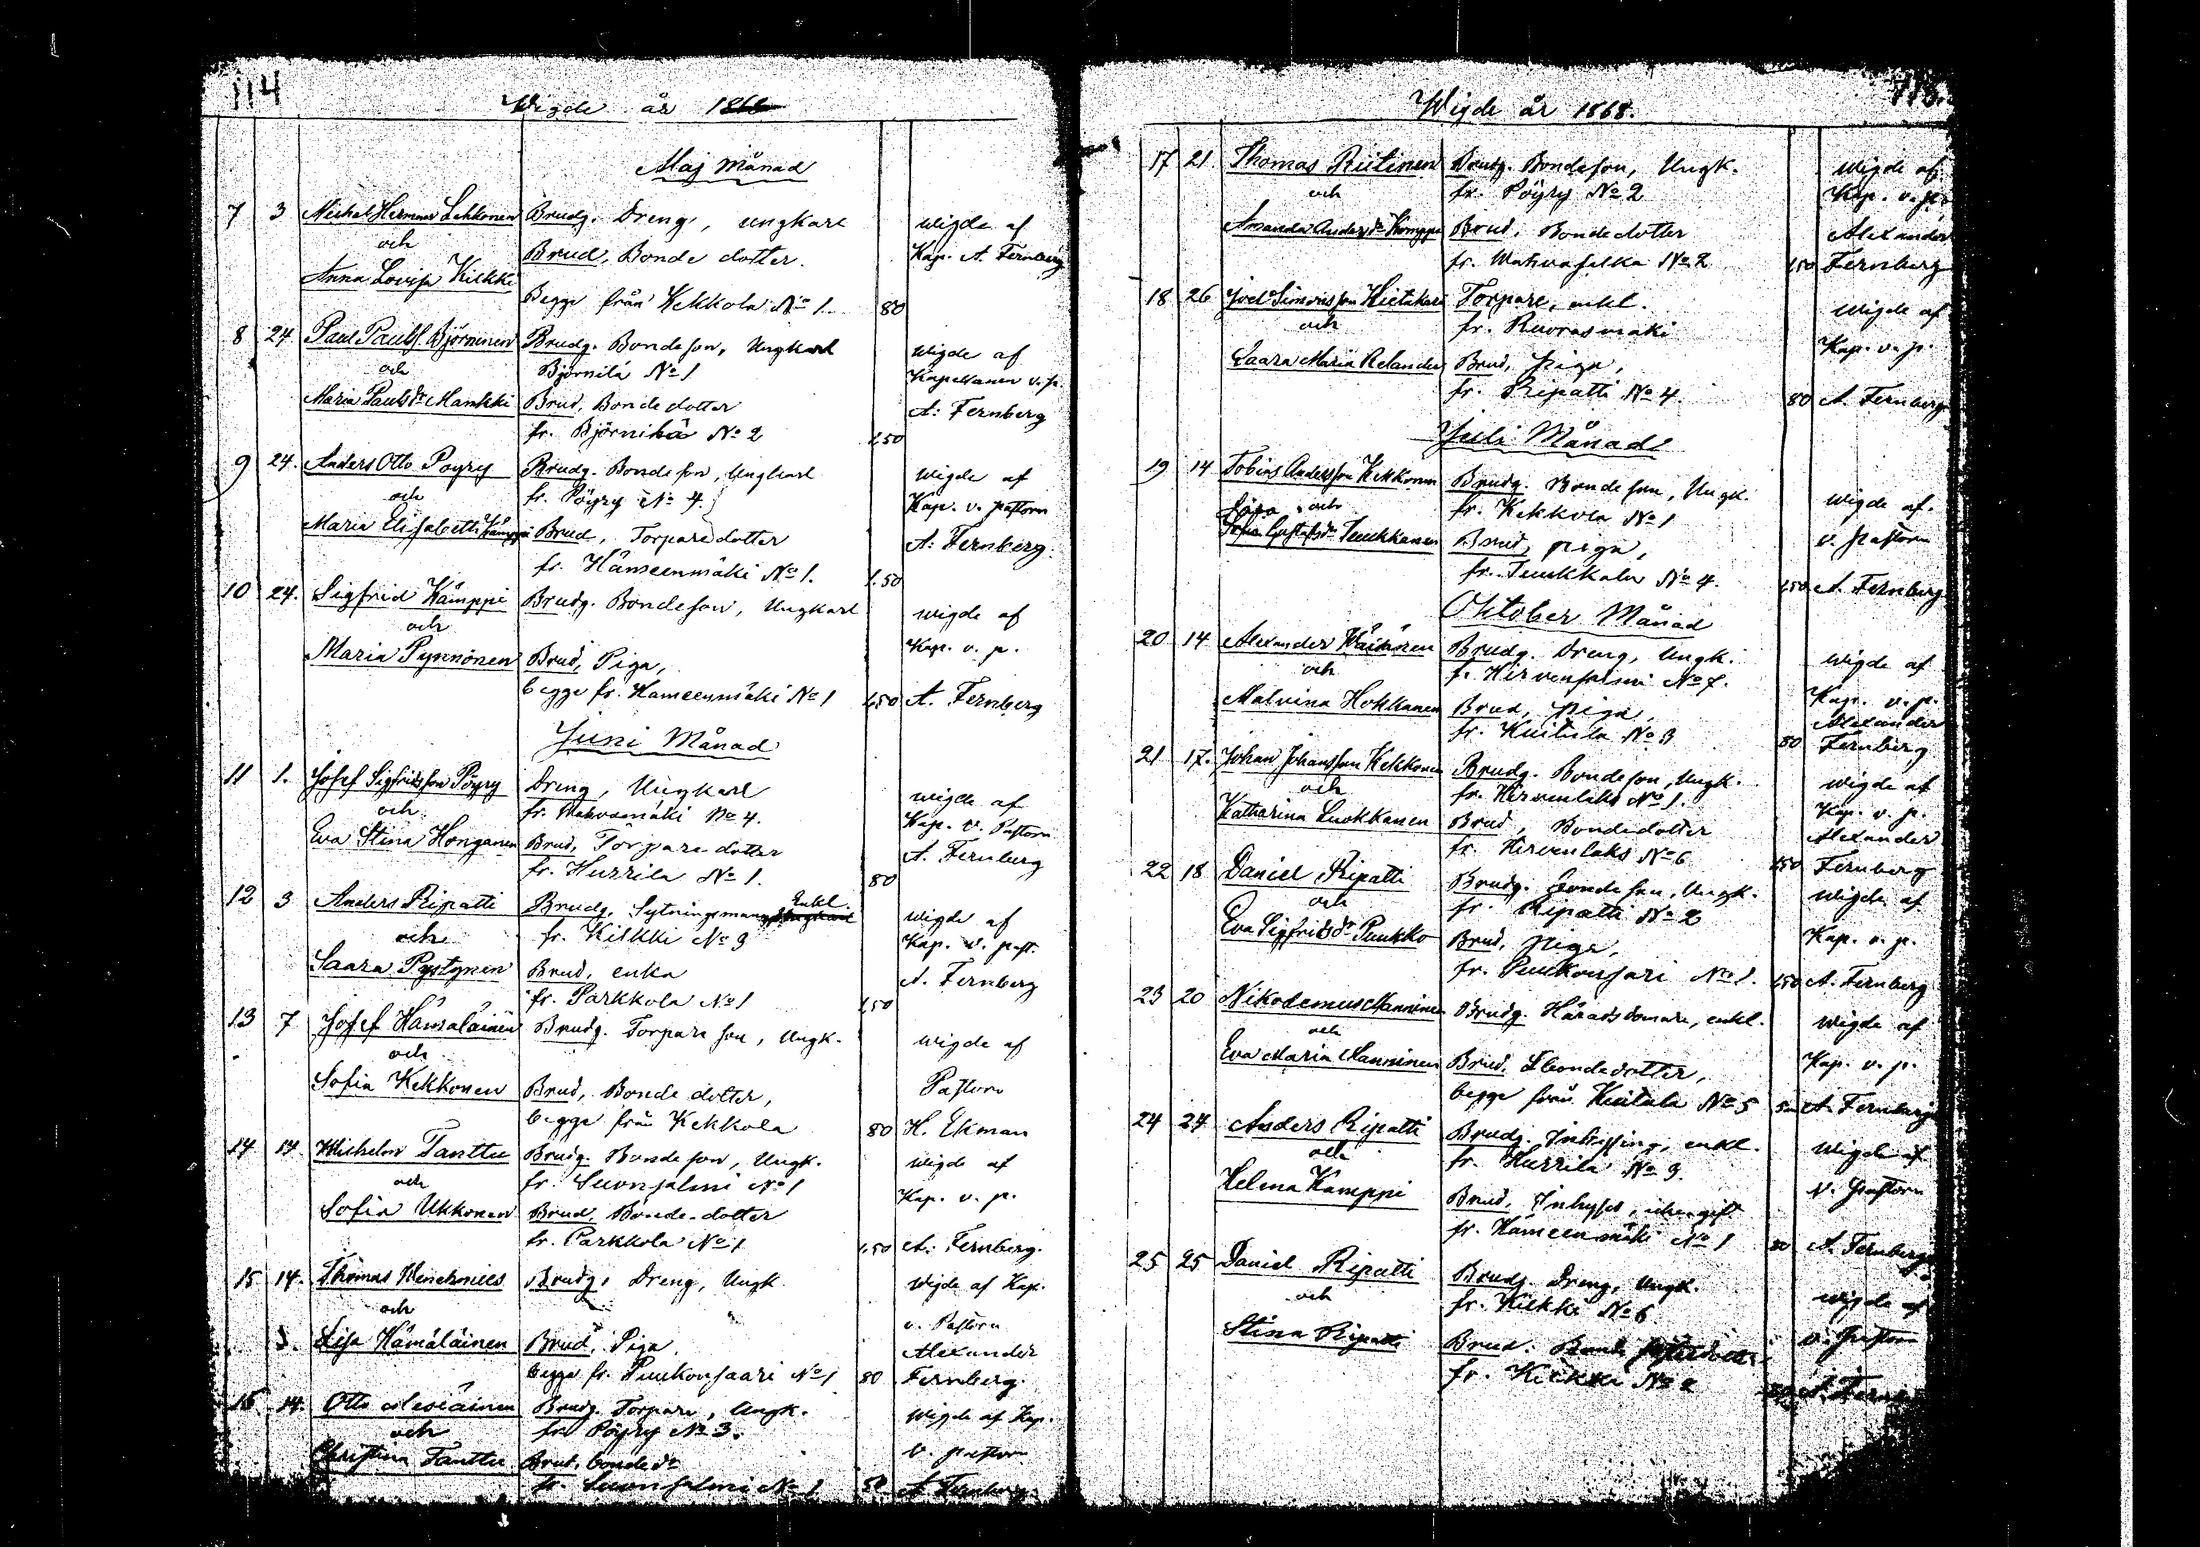 114
Wigde år 1868
Maj Månad
7 3 Michel Herman Lehkonen Brudg. Dreng, ungkarl wigde af
och Brud, Bonde dotter. Kap. A. Fernberg
Anna Lovisa Kilkki
Begge från Kekkola No 1. 80
8 24 Paul Paulss. Björninen Brudg. Bondeson, Ungkarl wigde af
och Björnilä No 1 Kapellanen v. p.
Maria Paulsdr Mankki Brud, Bonde dotter A. Fernberg
fr. Björnilä No 2 1.50
9 24. Anders Otto Pöyry Brudg. Bondeson, Ungkarl wigde af
och fr. Pöyry No 4. Kap. v. pastorn
Maria Elisabeth Kämppi Brud, Torpare dotter A. Fernberg.
fr. Hämeenmäki No 1. 1.50
10 24. Sigfrid Kämppi Brudg. Bondeson, Ungkarl wigde af
och Kap. v. p.
Maria Pynnönen Brud, Piga,
begge fr. Hämeenmäki No 1 1,50 A. Fernberg
Juni Månad
11 1. Josef Sigfridsson Pöyry Dreng, Ungkarl wigde af
och fr. Wahvamäki No 4. Kap. v. Pastorn
Eva Stina Honganen Brud, Torpare dotter A. Fernberg
fr. Hurrila No 1. 80
12 3 Anders Ripatti Brudg. Sytningsman, Enkl. wigde af
och fr. Kilkki No 3 Kap. v. past.
Saara Pystynen Brud, enka A. Fernberg
fr. Parkkola No 1 1,50
13 7 Josef Hämäläinen Brudg. Torpare son, Ungk. wigde af
och Pastorn
Sofia Kekkonen Brud, Bonde dotter,
begge från Kekkola 80 H. Ekman
14 14 Wilhelm Tanttu Brudg. Bondeson, Ungk. wigde af
och fr. Suonsalmi No 1 Kap. v. p.
Sofia Ukkonen Brud, Bonde-dotter
fr. Parkkola No 1 1,50 A. Fernberg.
15 14. Thomas Brudg. Dreng, Ungk. wigde af Kap.
och v. Pastorn
Lisa Hämäläinen Brud, Piga. Alexander
begge fr. Puukonsaari No 1 80 Fernberg.
16 14. Otto Brudg. Torpare, Ungk. wigde af Kap.
och fr. Pöyry No 3. v. pastorn
Christina Tanttu Brud, bonde dr
fr. Suonsalmi No 1 80 A. Fernberg
715.
Wigde år 1868.
17 21 Thomas Riitinen Brudg. Bondeson, Ungk. wigde af
och fr. Pöyry No 2 Kap. v. p.
Amanda Andersdr Kämppi Brud, Bonde dotter Alexander
fr. No 2 1,50 Fernberg
18 26 Joel Simonsson Torpare, enkl. wigde af
och fr. Ruorasmäki Kap. v. p.
Saara Maria Relander Brud, piga,
fr. Ripatti No 4. 80 A. Fernberg
Juli Månad
19 14 Tobias Andersson Kekkonen Brudg. Bondeson, Ungk. wigde af
och fr. Kekkola No 1 v. pastorn
Gustafsdr Tuukkanen Brud, piga,
fr. Tuukkala No 4. 1,50 A. Fernberg
Oktober Månad
20 14 Alexander Wäinänen Brudg. Dreng, Ungk. wigde af
och f. Hirvensalmi No 7. Kap. v. p.
Malvina Hokkanen Brud, piga, Alexander
fr. Kuitula No 3 80 Fernberg
21 17. Johan Johansson Kekkonen Brudg. Bondeson, Ungk. wigde af
och fr. Hirvenlaks No 1. Kap. v. p.
Katharina Luokkanen Brud, Bondedotter Alexander
fr. Hirvenlaks No 6 1,50 Fernberg
22 18 Daniel Ripatti Brudg. bondeson, Ungk. wigde af
och fr. Ripatti No 2 Kap. v. p.
Eva Sigfridsdr Puukko Brud, piga,
fr. Puukonsari No 1. 1,50 A. Fernberg
23 20 Nikodemus Manninen Brudg. Häradsdomare, enkl. wigde af
och Kap. v. p.
Eva Maria Manninen Brud, Bondedotter,
begge från Kuitula No 5 A. Fernberg
24 24 Anders Ripatti Brudg. Inhysing, enkl. wigde af
och fr. Hurrila No 3. v. pastorn
Helena Kämppi Brud, Inhyses,
fr. Hämeenmäki No 1 80 A. Fernberg
25 25 Daniel Ripatti Brudg. Dreng, Ungk. wigde af
och fr. Kilkki No 6 v. Pastorn
Stina Ripatti Brud. Bonde
fr. Kilkki No 2 A. Fernberg